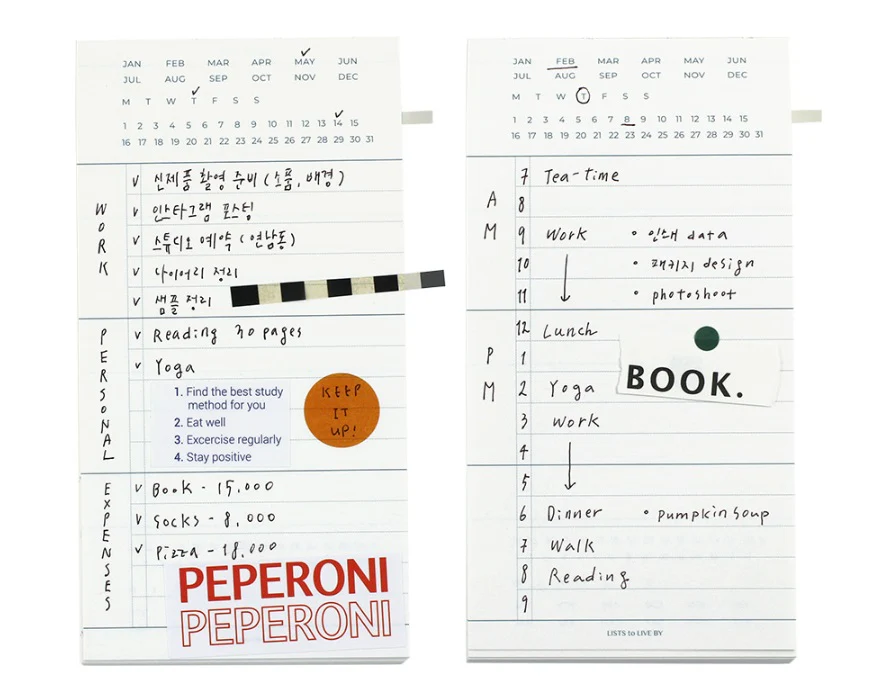 JAN FEB MAR APR MAY JUN
JUL AUG SEP OCT NOV DEC
M T W T F S S
1 2 3 4 5 6 7 8 9 10 11 12 13 14 15
16 17 18 19 20 21 22 23 24 25 26 27 28 29 30 31
WORK
v 신제품 촬영 준비 (소품, 배경)
v 인스타그램 포스팅
v 스튜디오 예약 (연남동)
v 다이어리 정리
v 샘플 정리
PERSONAL
v Reading 30 pages
v Yoga
1. Find the best study
method for you
2. Eat well
3. Excercise regularly
4. Stay positive
KEEP
IT
UP!
EXPENSES
v Book - 15,000
v Socks - 8,000
v Pizza - 18,000
PEPERONI
PEPERONI
JAN FEB MAR APR MAY JUN
JUL AUG SEP OCT NOV DEC
M T W T F S S
1 2 3 4 5 6 7 8 9 10 11 12 13 14 15
16 17 18 19 20 21 22 23 24 25 26 27 28 29 30 31
AM
7 Tea-time
8
9 Work • 인쇄 data
10 • 패키지 design
11 • photoshoot
PM
12 Lunch
1
BOOK.
2 Yoga
3 Work
4
5
6 Dinner • pumpkin soup
7 Walk
8 Reading
9
LISTS to LIVE BY